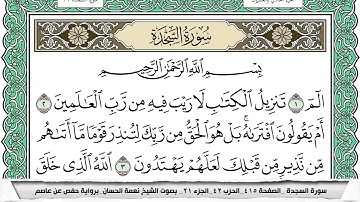 سُورَةُ السَّجْدَةِ
بِسْمِ اللَّهِ الرَّحْمَٰنِ الرَّحِيمِ
الٓمٓ ١ تَنزِيلُ الْكِتَٰبِ لَا رَيْبَ فِيهِ مِن رَّبِّ الْعَٰلَمِينَ ٢
أَمْ يَقُولُونَ افْتَرَىٰهُ ۚ بَلْ هُوَ الْحَقُّ مِن رَّبِّكَ لِتُنذِرَ قَوْمًا مَّآ أَتَىٰهُم
مِّن نَّذِيرٍ مِّن قَبْلِكَ لَعَلَّهُمْ يَهْتَدُونَ ٣ اللَّهُ الَّذِى خَلَقَ
سورة السجدة _الصفحة ٤١٥_ الحزب ٤٢_ الجزء ٢١_ بصوت الشيخ نعمة الحسان_ برواية حفص عن عاصم